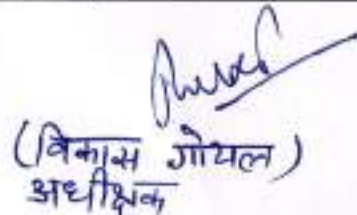 (विकास गोयल)
अधीक्षक